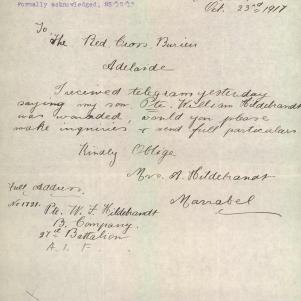 Formally acknowledged,
Oct. 23rd 1917
To
The Red Cross Bureau
Adelaide
I received telegram yesterday
saying my son Pte. William Hildebrandt
was wounded, would you please
make inquiries & send full particulars
Kindly Oblige
Mrs. A. Hildebrandt
Marrabel
Full Address.
No 1721.
Pte. W. F. Hildebrandt
B. Company.
27th Battalion
A. I. F.